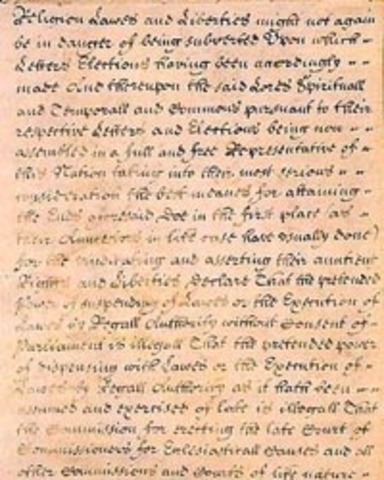 Religion Lawes and Liberties might not again
be in danger of being subverted Upon which
Letters Elections haveing been accordingly
made And thereupon the said Lords Spirituall
and Temporall and Commons pursuant to their
respective Letters and Elections being now
assembled in a full and free Representative of
this Nation taking into their most serious
consideration the best meanes for attaining
the Ends aforesaid Doe in the first place (as
their Auncestors in like case have usually done)
for the vindicating and asserting their auntient
Rights and Liberties Declare That the pretended
Power of suspending of Lawes or the Execution of
Lawes by Regall Authority without Consent of
Parliament is illegall That the pretended power
of dispensing with Lawes or the Execution of
Lawes by Regall Authority as it hath been
assumed and exercised of late is illegall That
the Commission for erecting the late Court of
Commissioners for Ecclesiasticall Causes and all
other Commissions and Courts of like nature